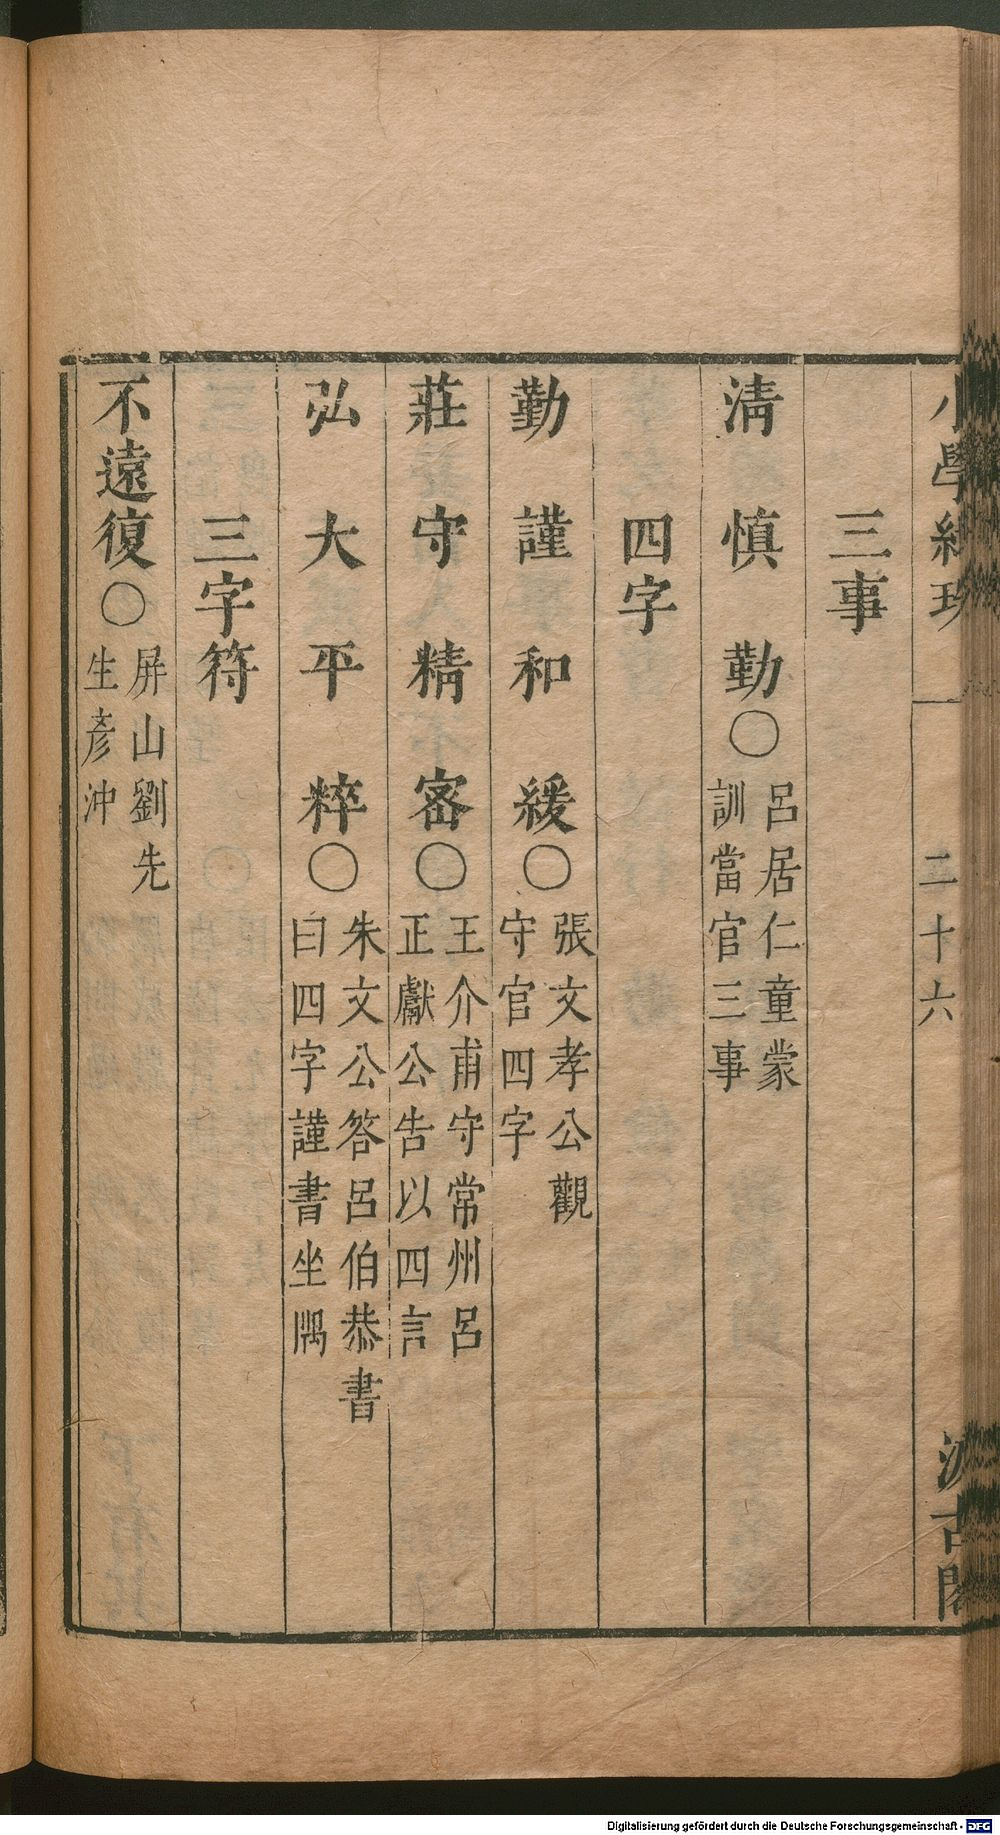 小學紺珠 一 二十六 汲古閣
三事
清 慎 勤○呂居仁童蒙
訓當官三事
四字
勤 謹 和 緩○張文孝公觀
守官四字
莊 守 精 密○王介甫守常州呂
正獻公告以四言
弘 大 平 粹○朱文公答呂伯恭書
曰四字謹書坐隅
三字符
不遠復○屏山劉先
生彥沖
Digitalisierung gefördert durch die Deutsche Forschungsgemeinschaft - DFG